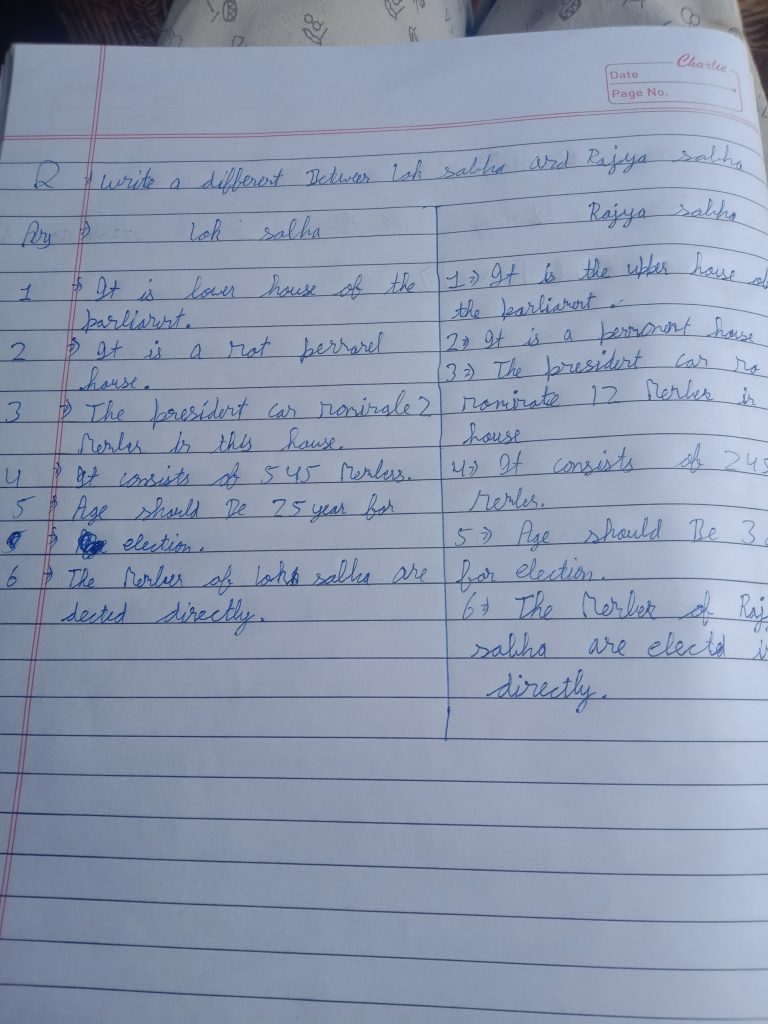 Charlie
Date
Page No.
Q → Write a different Between Lok sabha and Rajya sabha
Ans → Lok sabha
1 → It is lower house of the
parliamnt.
2 → It is a not permanel
house.
3 → The president can nominale 2
Member in this house.
4 → It consists of 545 Members.
5 → Age should be 25 year for
→ election.
6 → The Member of Lok sabha are
elected directly.
Rajya sabha
1 → It is the upper house of
the parliamnt.
2 → It is a permonent house
3 → The president can no
nominate 12 Member in
house
4 → It consists of 245
Member.
5 → Age should Be 3
for election.
6 → The Member of Raj
sabha are electd in
directly.